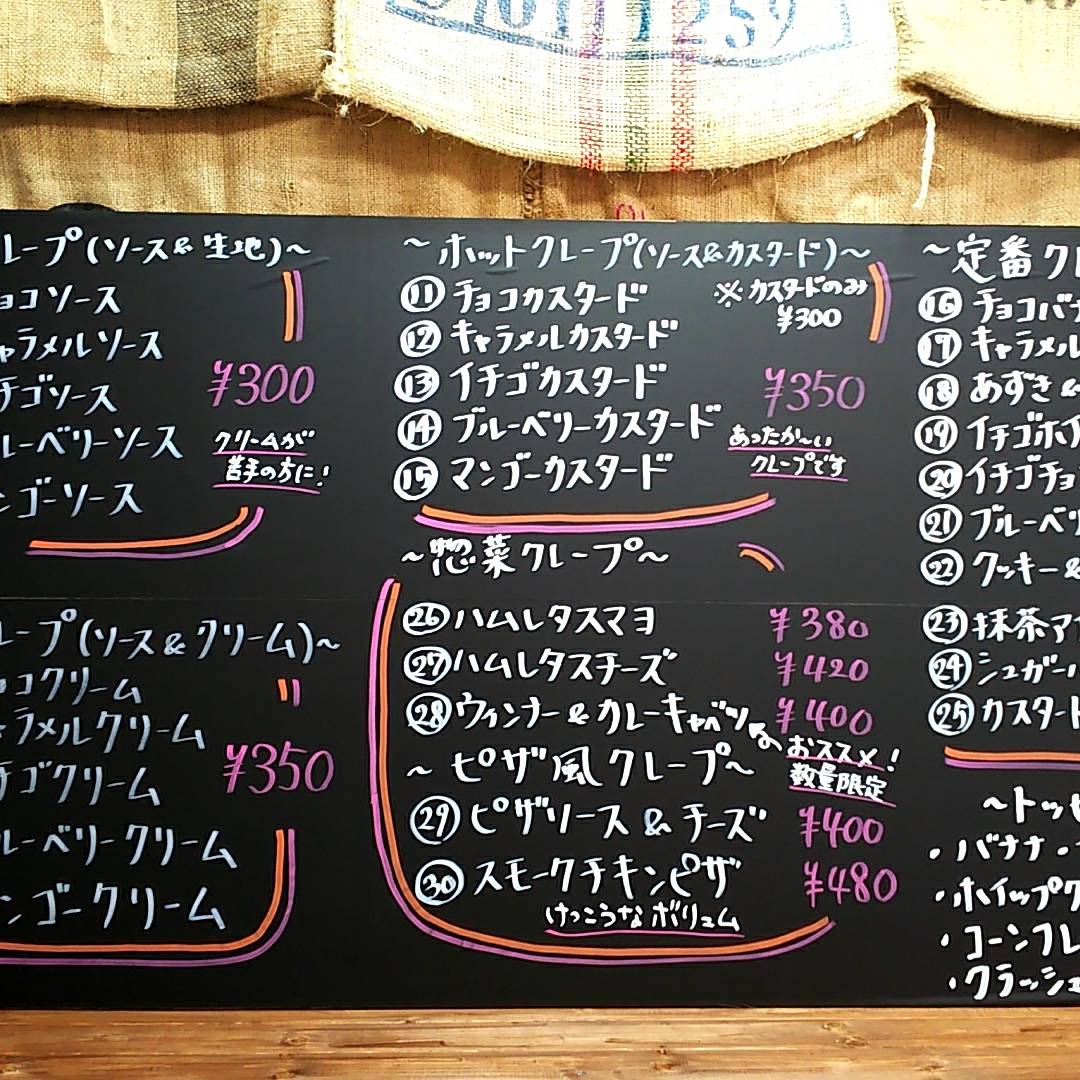 レープ(ソース&生地)~
ョコソース
ャラメルソース
チゴソース
¥300
ルーベリーソース
クリームが
苦手の方に!
ンゴーソース
レープ(ソース&クリーム)~
ョコクリーム
ラメルクリーム
チゴクリーム
¥350
ルーベリークリーム
ンゴークリーム
~ホットクレープ(ソース&カスタード)~
⑪チョコカスタード
※カスタードのみ
¥300
⑫キャラメルカスタード
⑬イチゴカスタード
¥350
⑭ブルーベリーカスタード
あったか~い
クレープです
⑮マンゴーカスタード
~惣菜クレープ~
㉖ハムレタスマヨ ¥380
㉗ハムレタスチーズ ¥420
㉘ウィンナー&カレーキャベツ ¥400
おススメ!
数量限定
~ピザ風クレープ~
㉙ピザソース&チーズ ¥400
㉚スモークチキンピザ ¥480
けっこうなボリュム
~定番ク
⑯チョコバ
⑰キャラメル
⑱あずき&
⑲イチゴホ
⑳イチゴチョ
㉑ブルーベリ
㉒クッキー&
㉓抹茶ア
㉔シュガー
㉕カスタード
~トッ
・バナナ・
・ホイップク
・コーンフレ
・クラッシュ